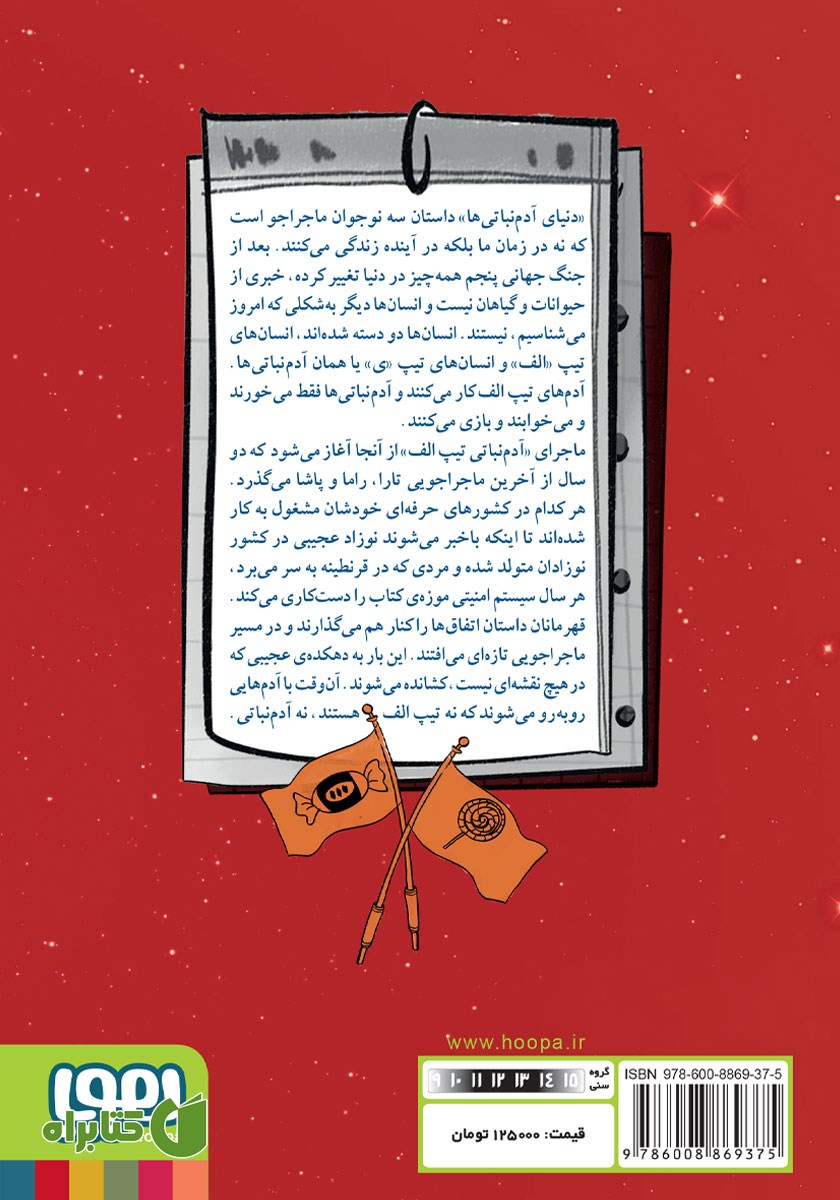 «دنیای آدم‌نباتی‌ها» داستان سه نوجوان ماجراجو است
که نه در زمان ما بلکه در آینده زندگی می‌کنند. بعد از
جنگ جهانی پنجم همه‌چیز در دنیا تغییر کرده، خبری از
حیوانات و گیاهان نیست و انسان‌ها دیگر به‌شکلی که امروز
می‌شناسیم، نیستند. انسان‌ها دو دسته شده‌اند، انسان‌های
تیپ «الف» و انسان‌های تیپ «ی» یا همان آدم‌نباتی‌ها.
آدم‌های تیپ الف کار می‌کنند و آدم‌نباتی‌ها فقط می‌خورند
و می‌خوابند و بازی می‌کنند.
ماجرای «آدم‌نباتی تیپ الف» از آنجا آغاز می‌شود که دو
سال از آخرین ماجراجویی تارا، راما و پاشا می‌گذرد.
هر کدام در کشورهای حرفه‌ای خودشان مشغول به کار
شده‌اند تا اینکه باخبر می‌شوند نوزاد عجیبی در کشور
نوزادان متولد شده و مردی که در قرنطینه به سر می‌برد،
هر سال سیستم امنیتی موزه‌ی کتاب را دست‌کاری می‌کند.
قهرمانان داستان اتفاق‌ها را کنار هم می‌گذارند و در مسیر
ماجراجویی تازه‌ای می‌افتند. این بار به دهکده‌ی عجیبی که
در هیچ نقشه‌ای نیست، کشانده می‌شوند. آن‌وقت با آدم‌هایی
روبه‌رو می‌شوند که نه تیپ الف هستند، نه آدم‌نباتی.
www.hoopa.ir
گروه سنی
۹ ۱۰ ۱۱ ۱۲ ۱۳ ۱۴ ۱۵
ISBN 978-600-8869-37-5
قیمت: ۱۲۵۰۰۰ تومان
9 786008 869375
هوپا
کتابراه